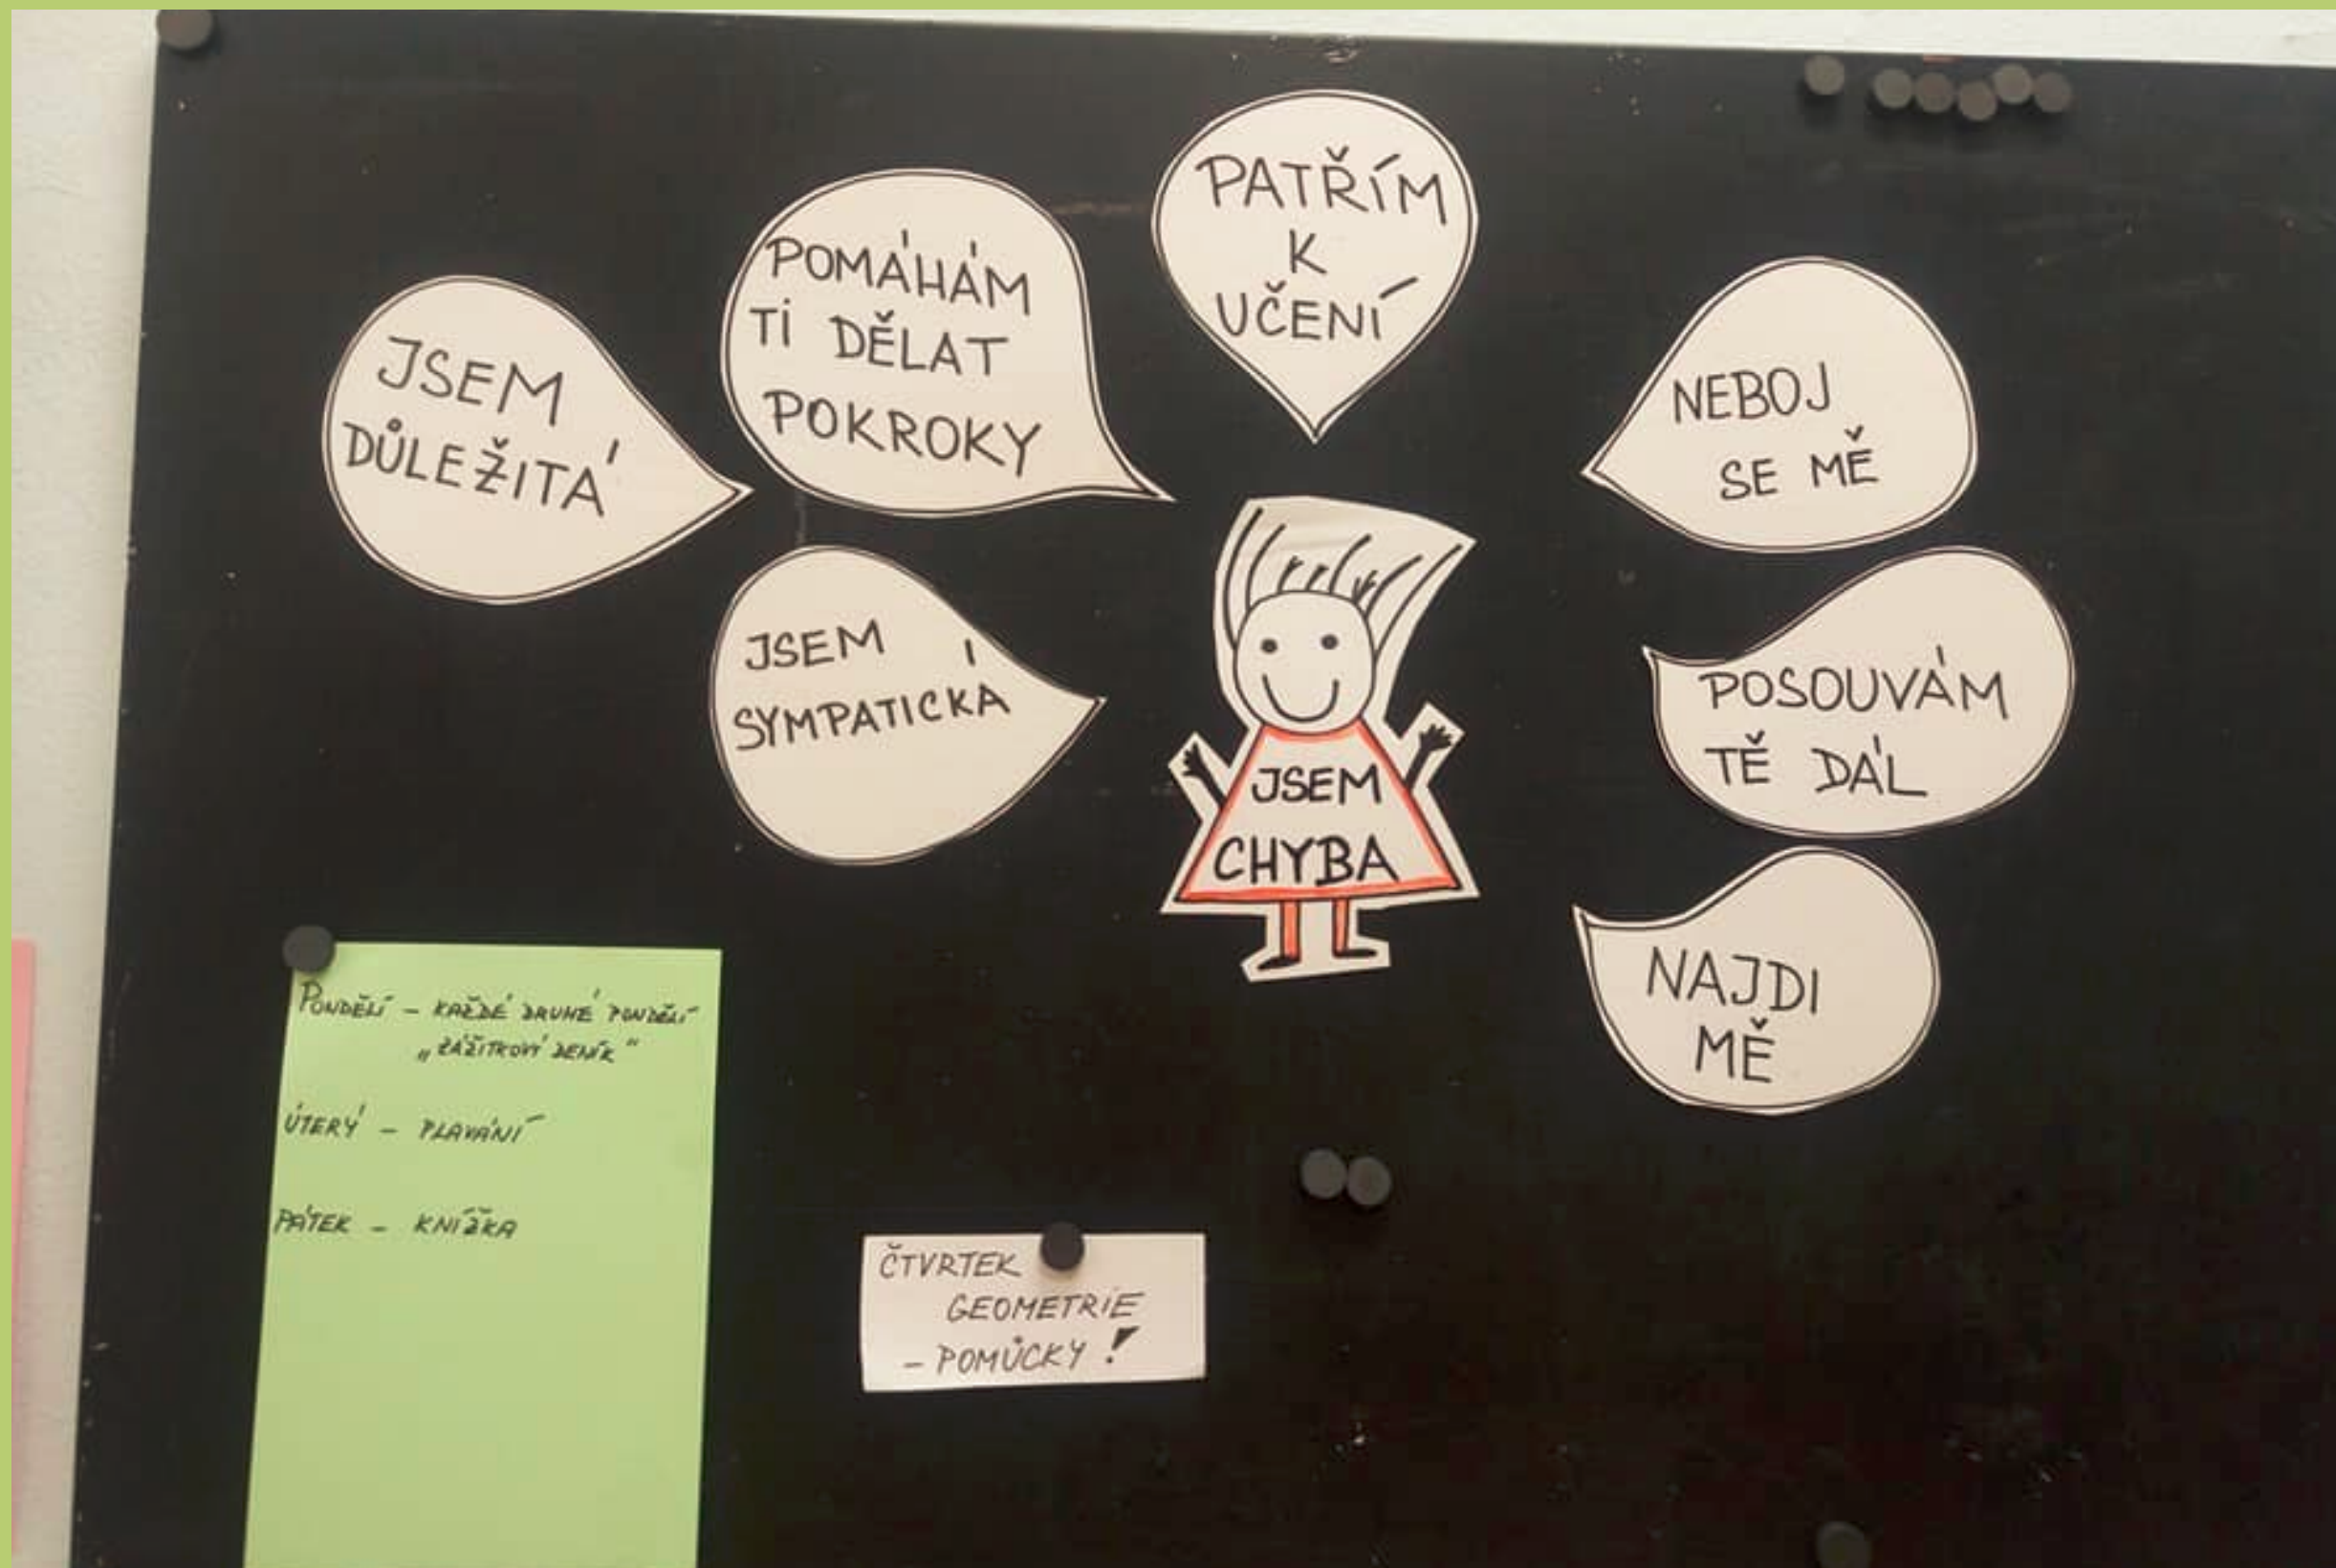 JSEM
DŮLEŽITÁ
POMÁHÁM
TI DĚLAT
POKROKY
PATŘÍM
K
UČENÍ
NEBOJ
SE MĚ
JSEM
SYMPATICKÁ
JSEM
CHYBA
POSOUVÁM
TĚ DÁL
NAJDI
MĚ
PONDĚLÍ – KAŽDÉ DRUHÉ PONDĚLÍ
„ZÁŽITKOVÝ DENÍK“
ÚTERÝ – PLAVÁNÍ
PÁTEK – KNÍŽKA
ČTVRTEK
GEOMETRIE
– POMŮCKY!